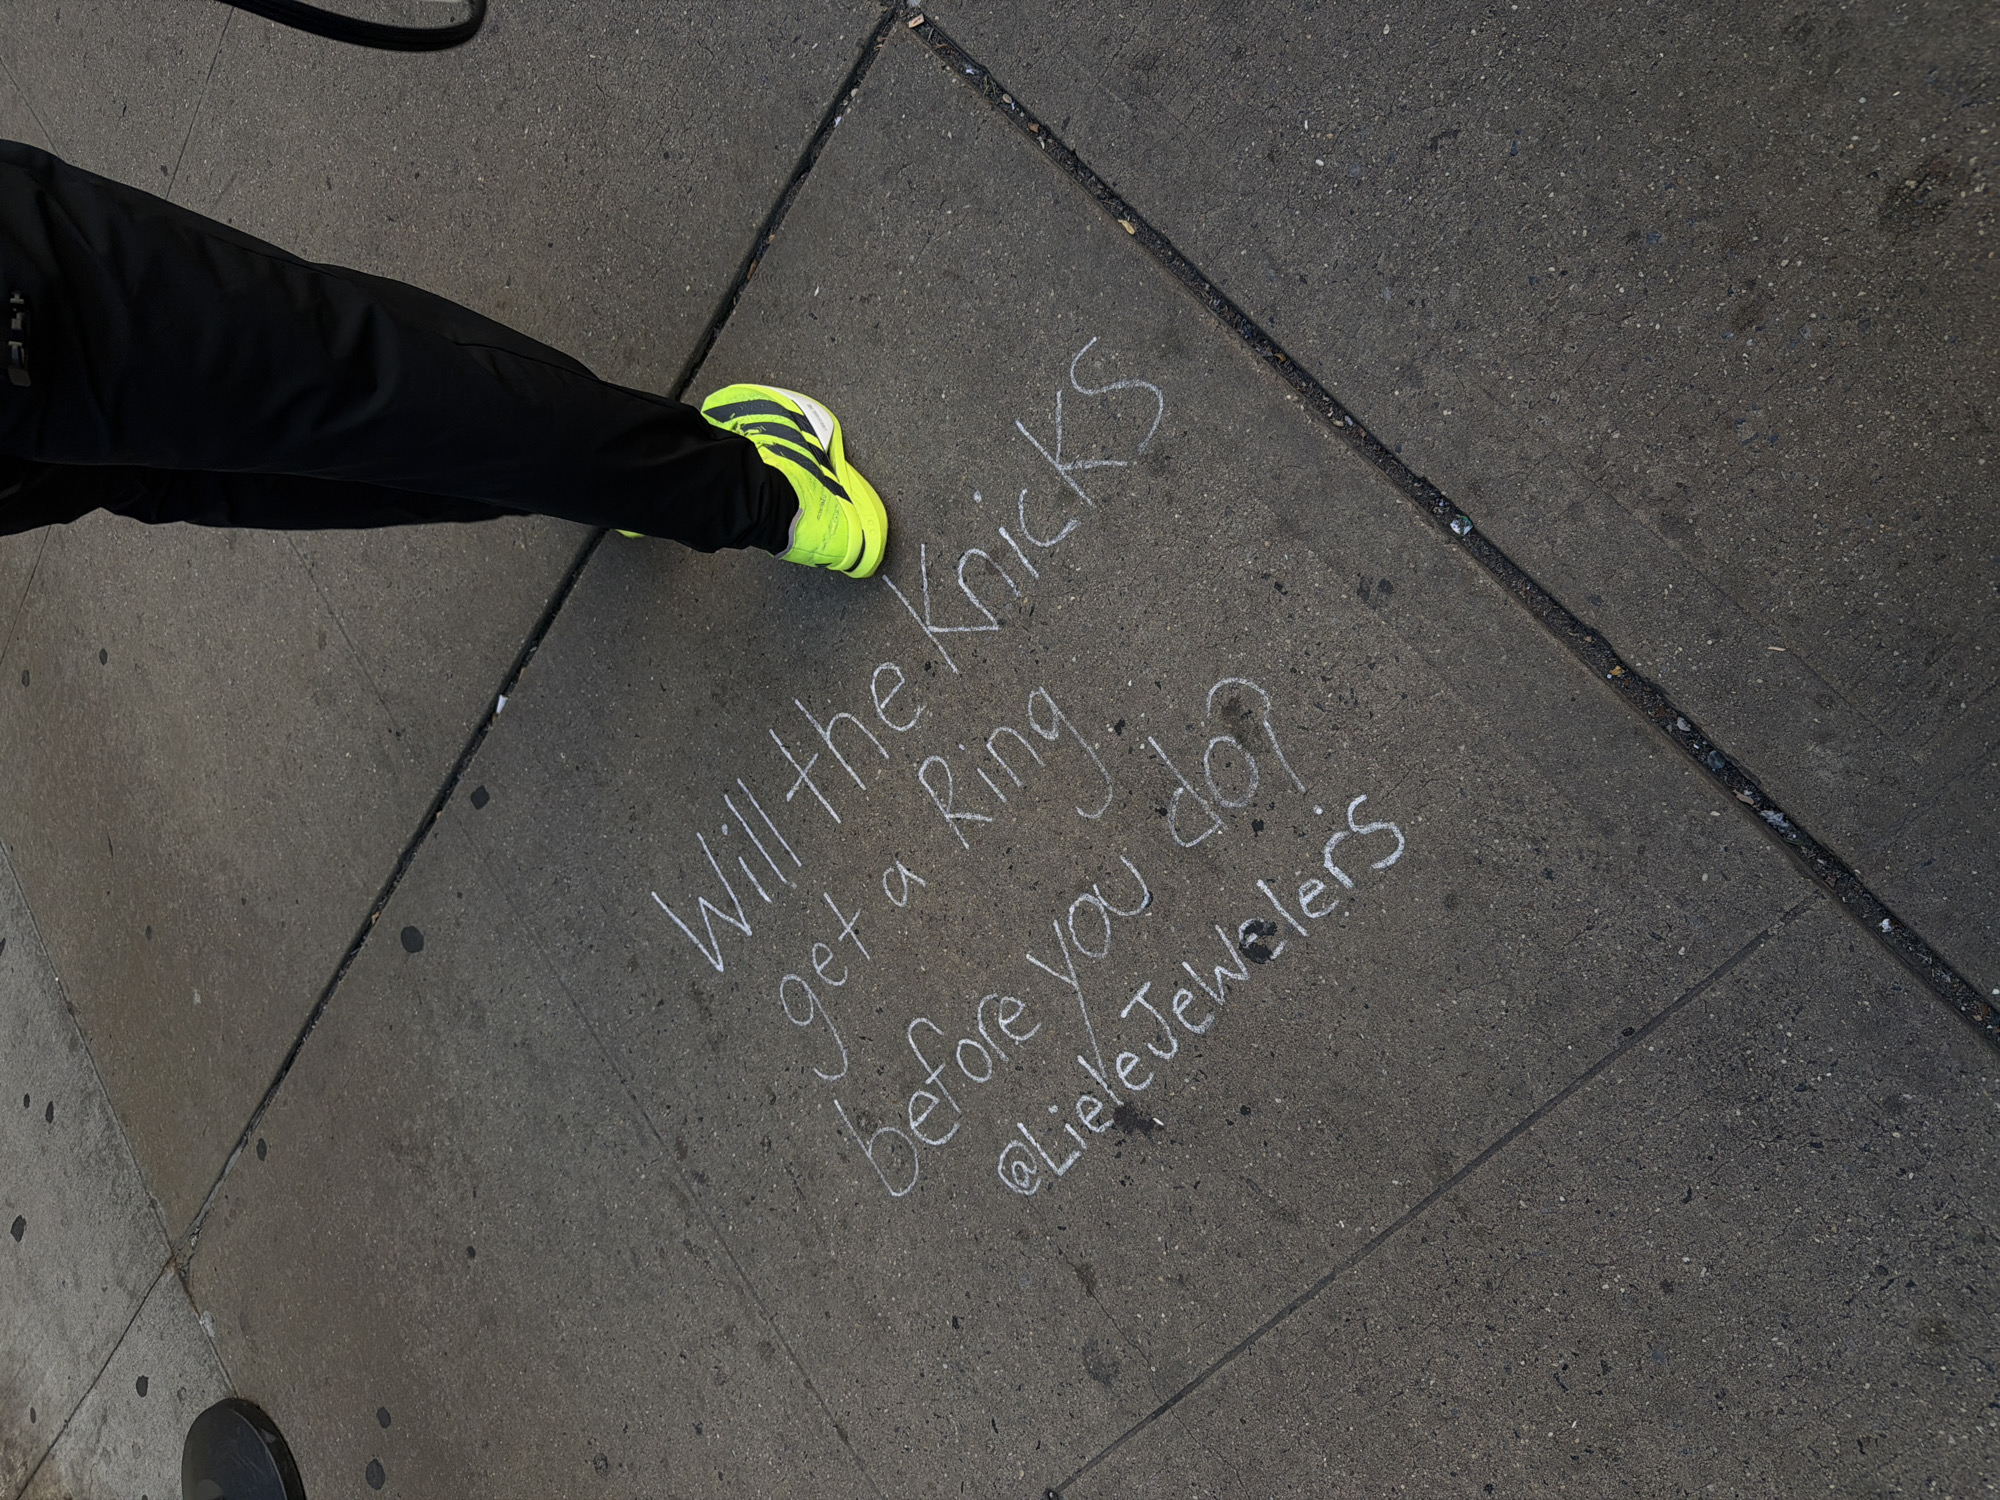 Will the Knicks
get a Ring
before you do?
@LieleJewelers